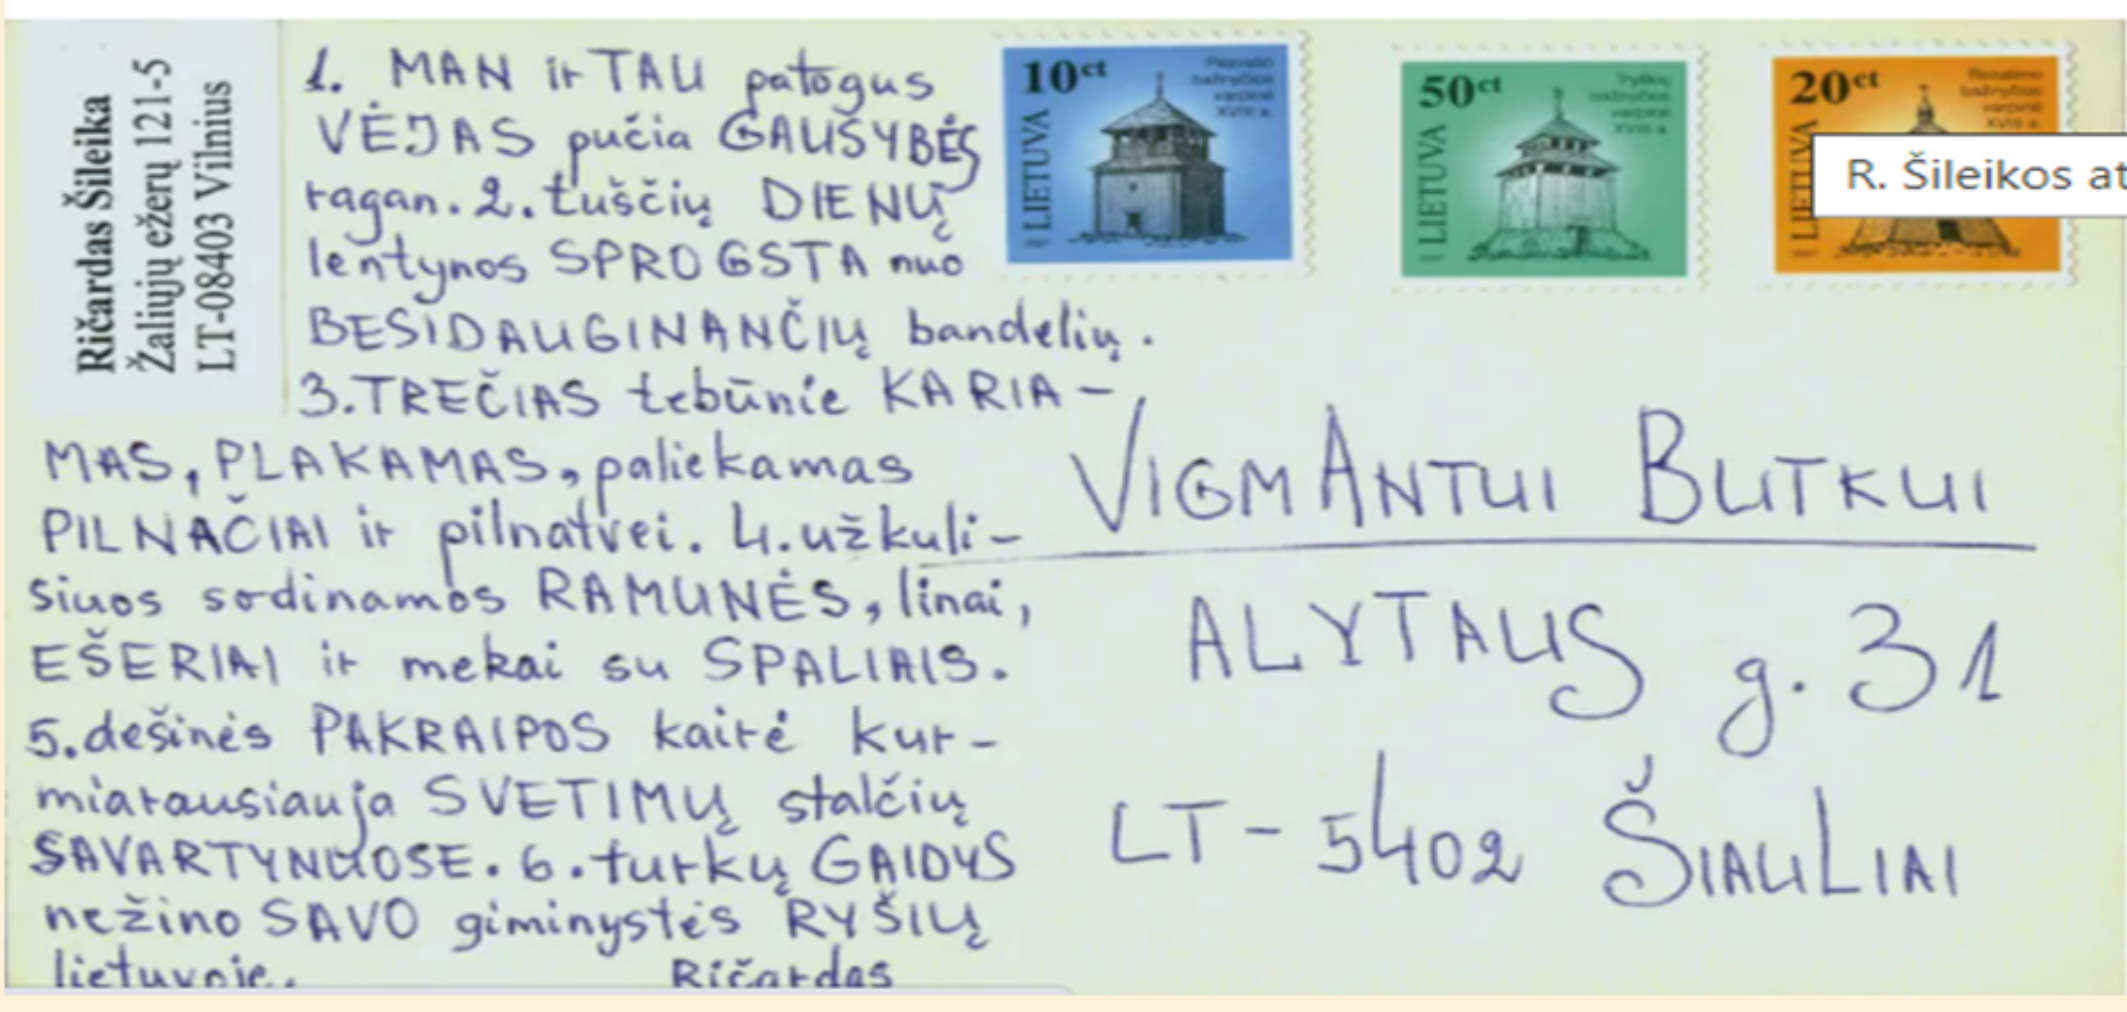 Ričardas Šileika
Žaliųjų ežerų 121-5
LT-08403 Vilnius
1. MAN ir TAU patogus
VĖJAS pučia GAUSYBĖS
ragan. 2. tuščių DIENŲ
lentynos SPROGSTA nuo
BESIDAUGINANČIŲ bandelių.
3. TREČIAS tebūnie KARIA-
MAS, PLAKAMAS, paliekamas
PILNAČIAI ir pilnatvei. 4. užkuli-
siuos sodinamos RAMUNĖS, linai,
EŠERIAI ir mekai su SPALIAIS.
5. dešinės PAKRAIPOS kairė kur-
miarausiauja SVETIMŲ stalčių
SAVARTYNUOSE. 6. turkų GAIDYS
nežino SAVO giminystės RYŠIŲ
lietuvoje. Ričardas
10ct
LIETUVA
bažnyčios
varpinė
XVIII a.
50ct
LIETUVA
Tryškių
bažnyčios
varpinė
XVIII a.
20ct
LIETUVA
Rozalimo
bažnyčios
varpinė
XVIII a.
R. Šileikos at
VIGMANTUI BUTKUI
ALYTAUS g. 31
LT-5402 ŠIAULIAI